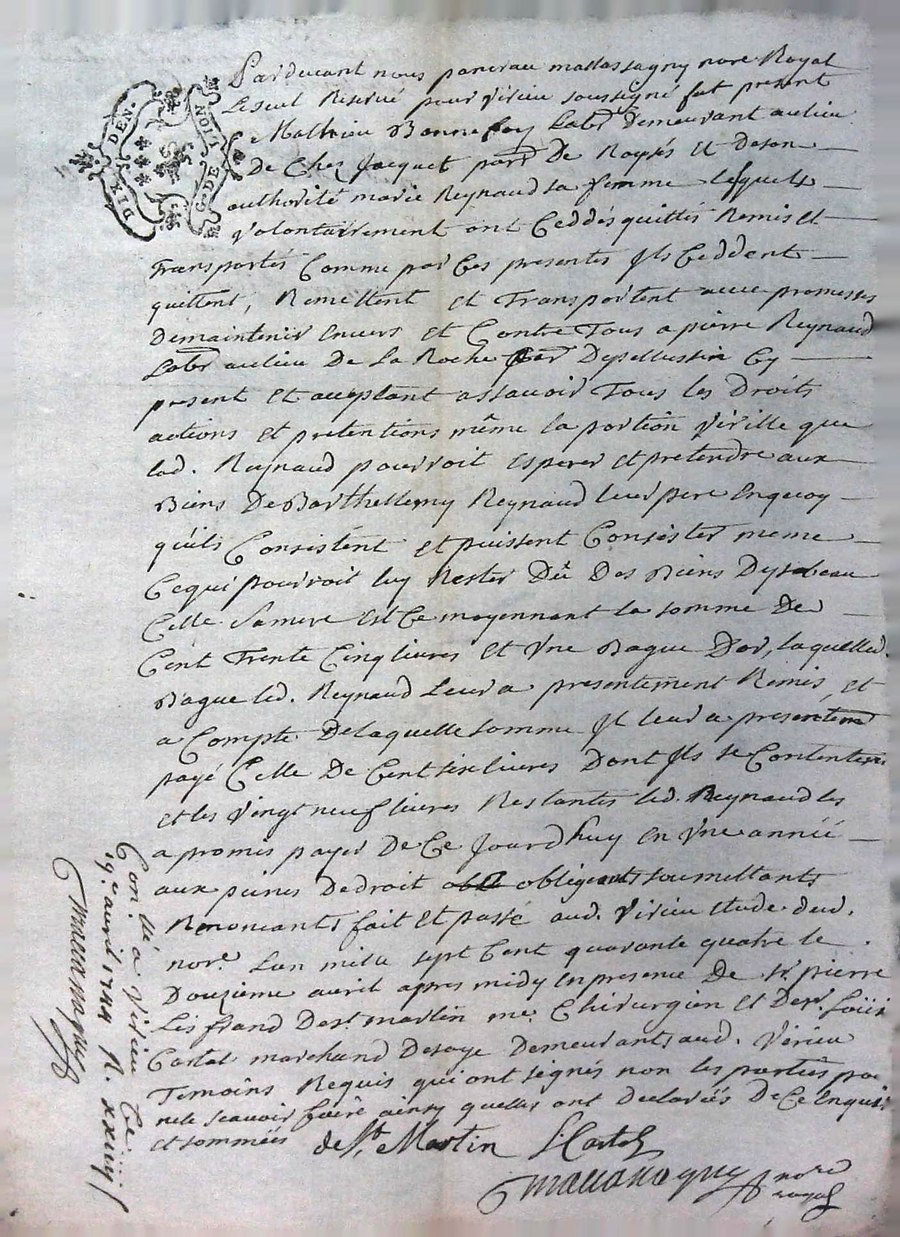 DIX DEN. G. DE LION
Pardevant nous pancrau mallassagny nore Royal
Leseul Reservé pour virieu soussigné fut present
Mathieu Bonnefoy Labr Demeurant aulieu
De Chez Jacquet parr De Roysés Et deson
authorité marie Reynaud sa femme lesquels
volontairement ont Ceddés quittés Remis Et
Transportés Comme par Ces presentes Ils Ceddent
quittent, Remettent Et Transportent avec promesses
Demaintenir Envers Et Contre Tous a pierre Reynaud
Labr aulieu De La Roche parr Depellussin Cy
present Et acceptant assavoir Tous les Droits
actions Et pretentions même la portion virille que
lad. Reynaud pourroit Esperer Et pretendre aux
Biens De Barthellemy Reynaud leur pere Enquoy
qu'ils Consistent Et puissent Consister meme
Cequi pourroit luy Rester Dû Des Biens Dysabeau
Celle Samere Est Ce moyennant la somme De
Cent Trente Cinq livres Et Une Bague Dor, laquelled.
Bague led. Reynaud Leur a presentement Remis, et
a Compte Delaquelle somme Il leur a presentemt
payé Celle De Cent six livres Dont Ils se Contentent
Et les vingt neuf livres Restantes led. Reynaud les
a promis payer De Ce Jourd'huy En Une année
aux peines Dedroit obligeants soumettants
Renoncants fait Et passé aud. Virieu Etude dud.
nore. Lan mil sept Cent quarante quatre le
Douzieme avril apres midy En presence De sr pierre
Lissrand Dest martin me. Chirurgien Et De sr. Loüis
Cartal marchand Desoye Demeurants aud. Virieu
Temoins Requis qui ont signés non les parties pour
nele scavoir faire ainsy quelles ont Declarées De Ce Enquises
Et sommées
de St. Martin L Cartal
nore
royal
Con. lé a virieu Ce
19e avril 1744 R. xxiiij s